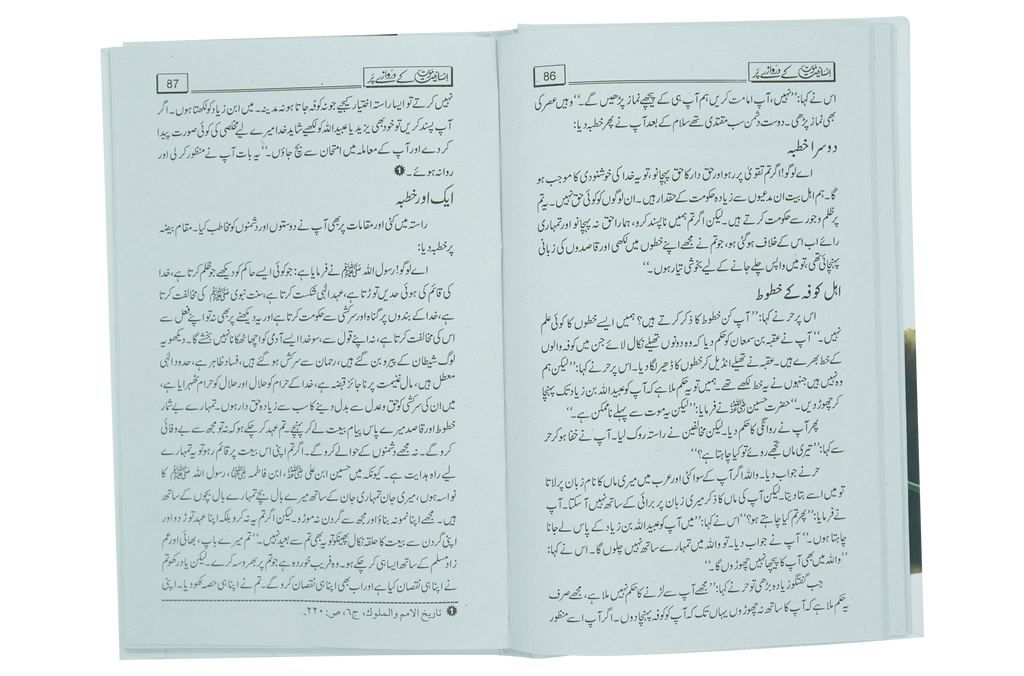 86
انسانیت موت کے دروازے پر
اس نے کہا: ’’نہیں، آپ امامت کریں ہم آپ ہی کے پیچھے نماز پڑھیں گے۔‘‘ وہیں عصر کی
بھی نماز پڑھی۔ دوست دشمن سب مقتدی تھے سلام کے بعد آپ نے پھر خطبہ دیا:
دوسرا خطبہ
اے لوگو! اگر تم تقویٰ پر رہو اور حق دار کا حق پہچانو، تو یہ خدا کی خوشنودی کا موجب ہو
گا۔ ہم اہل بیت ان مدعیوں سے زیادہ حکومت کے حقدار ہیں۔ ان لوگوں کو کوئی حق نہیں۔ یہ تم
پر ظلم و جور سے حکومت کرتے ہیں۔ لیکن اگر تم ہمیں ناپسند کرو، ہمارا حق نہ پہچانو اور تمہاری
رائے اب اس کے خلاف ہو گئی ہو، جو تم نے مجھے اپنے خطوں میں لکھی اور قاصدوں کی زبانی
پہنچائی تھی، تو میں واپس چلے جانے کے لیے بخوشی تیار ہوں۔‘‘
اہل کوفہ کے خطوط
اس پر حر نے کہا: ’’آپ کن خطوط کا ذکر کرتے ہیں؟ ہمیں ایسے خطوں کا کوئی علم
نہیں۔‘‘ آپ نے عقبہ بن سمعان کو حکم دیا کہ وہ دونوں تھیلے نکال لائے جن میں کوفہ والوں
کے خط بھرے ہیں۔ عقبہ نے تھیلے انڈیل کر خطوں کا ڈھیر لگا دیا۔ اس پر حر نے کہا: ’’لیکن ہم
وہ نہیں ہیں جنہوں نے یہ خط لکھے تھے۔ ہمیں تو یہ حکم ملا ہے کہ آپ کو عبید اللہ بن زیاد تک پہنچا
کر چھوڑ دیں۔‘‘ حضرت حسین رضی اللہ عنہ نے فرمایا: ’’لیکن یہ موت سے پہلے ناممکن ہے۔‘‘
پھر آپ نے روانگی کا حکم دیا۔ لیکن مخالفین نے راستہ روک لیا۔ آپ نے خفا ہو کر حر
سے کہا: ’’تیری ماں تجھے روئے تو کیا چاہتا ہے؟‘‘
حر نے جواب دیا۔ واللہ اگر آپ کے سوا کوئی اور عرب میں میری ماں کا نام زبان پر لاتا
تو میں اسے بتا دیتا۔ لیکن آپ کی ماں کا ذکر میری زبان پر برائی کے ساتھ نہیں آ سکتا۔ آپ
نے فرمایا: ’’پھر تم کیا چاہتے ہو؟‘‘ اس نے کہا: ’’میں آپ کو عبید اللہ بن زیاد کے پاس لے جانا
چاہتا ہوں۔‘‘ آپ نے جواب دیا۔ تو واللہ میں تمہارے ساتھ نہیں چلوں گا۔ اس نے کہا:
’’واللہ میں بھی آپ کا پیچھا نہیں چھوڑوں گا۔‘‘
جب گفتگو زیادہ بڑھی تو حر نے کہا: ’’مجھے آپ سے لڑنے کا حکم نہیں ملا ہے، مجھے صرف
یہ حکم ملا ہے کہ آپ کا ساتھ نہ چھوڑوں یہاں تک کہ آپ کو کوفہ پہنچا دوں۔ اگر آپ اسے منظور
87
انسانیت موت کے دروازے پر
نہیں کرتے تو ایسا راستہ اختیار کیجیے جو نہ کوفہ جاتا ہو نہ مدینہ۔ میں ابن زیاد کو لکھتا ہوں۔ اگر
آپ پسند کریں تو خود بھی یزید یا عبید اللہ کو لکھیے شاید خدا میرے لیے مخلصی کی کوئی صورت پیدا
کر دے اور آپ کے معاملہ میں امتحان سے بچ جاؤں۔‘‘ یہ بات آپ نے منظور کر لی اور
روانہ ہوئے۔ ❶
ایک اور خطبہ
راستہ میں کئی اور مقامات پر بھی آپ نے دوستوں اور دشمنوں کو مخاطب کیا۔ مقام بیضہ
پر خطبہ دیا:
اے لوگو! رسول اللہ ﷺ نے فرمایا ہے: جو کوئی ایسے حاکم کو دیکھے جو ظلم کرتا ہے، خدا
کی قائم کی ہوئی حدیں توڑتا ہے، عہد الٰہی شکست کرتا ہے، سنت نبوی ﷺ کی مخالفت کرتا
ہے، خدا کے بندوں پر گناہ اور سرکشی سے حکومت کرتا ہے اور یہ دیکھنے پر بھی نہ تو اپنے فعل سے
اس کی مخالفت کرتا ہے، نہ اپنے قول سے، سو خدا ایسے آدمی کو اچھا ٹھکانا نہیں بخشے گا۔ دیکھو یہ
لوگ شیطان کے پیرو بن گئے ہیں، رحمان سے سرکش ہو گئے ہیں، فساد ظاہر ہے، حدود الٰہی
معطل ہیں، مال غنیمت پر ناجائز قبضہ ہے، خدا کے حرام کو حلال اور حلال کو حرام ٹھہرایا ہے،
میں ان کی سرکشی کو حق و عدل سے بدل دینے کا سب سے زیادہ حق دار ہوں۔ تمہارے بے شمار
خطوط اور قاصد میرے پاس پیام بیعت لے کر پہنچے۔ تم عہد کر چکے ہو کہ نہ تو مجھ سے بے وفائی
کرو گے۔ نہ مجھے دشمنوں کے حوالے کرو گے۔ اگر تم اپنی اس بیعت پر قائم رہو تو یہ تمہارے
لیے راہ ہدایت ہے۔ کیونکہ میں حسین ابن علی رضی اللہ عنہ، ابن فاطمہ رضی اللہ عنہا، رسول اللہ ﷺ کا
نواسہ ہوں، میری جان تمہاری جان کے ساتھ میرے بال بچے تمہارے بال بچوں کے ساتھ
ہیں۔ مجھے اپنا نمونہ بناؤ اور مجھ سے گردن نہ موڑو۔ لیکن اگر تم یہ نہ کرو بلکہ اپنا عہد توڑ دو اور
اپنی گردن سے بیعت کا حلقہ نکال پھینکو تو یہ بھی تم سے بعید نہیں۔‘‘ تم میرے باپ، بھائی اور عم
زاد مسلم کے ساتھ ایسا ہی کر چکے ہو۔ وہ فریب خوردہ ہے جو تم پر بھروسہ کرے۔ لیکن یاد رکھو تم
نے اپنا ہی نقصان کیا ہے اور اب بھی اپنا ہی نقصان کرو گے۔ تم نے اپنا ہی حصہ کھو دیا۔ اپنی
❶ تاریخ الامم والملوك، ج٦، ص: ٢٢٠۔